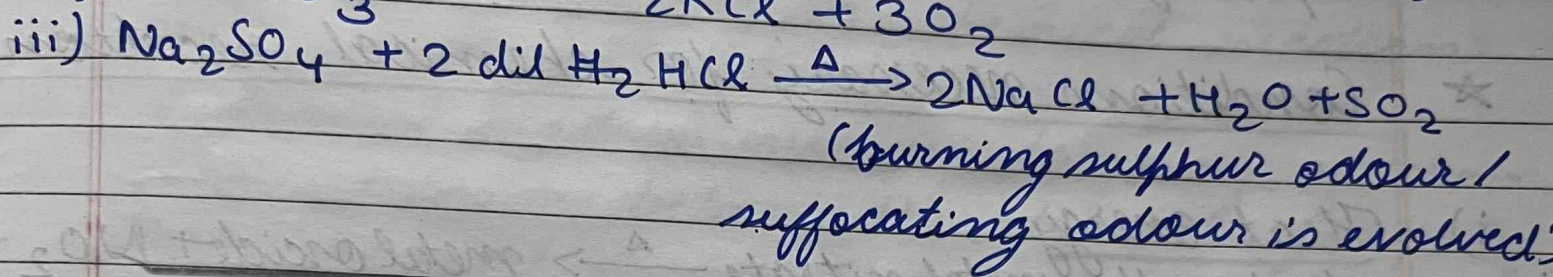 2KCl + 3O2
iii) Na2SO4 3 + 2 dil H2 HCl Δ→ 2NaCl + H2O + SO2
(burning sulphur odour /
suffocating odour is evolved.